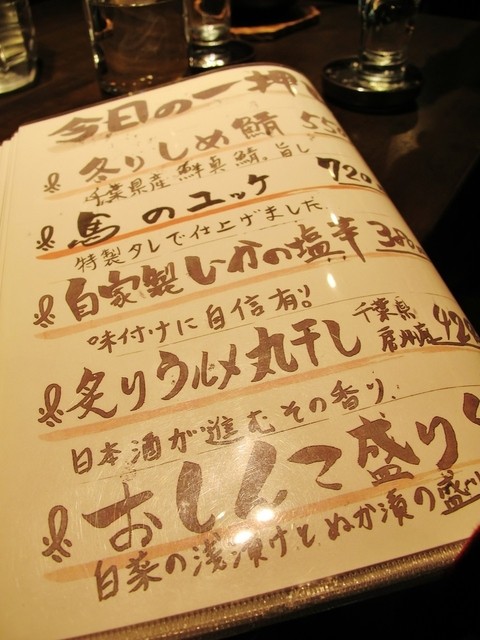 今日の一押
炙りしめ鯖 550
千葉県産 鮮真鯖。旨し
馬のユッケ 720
特製タレで仕上げました
自家製いかの塩辛 380
味付けに自信有!!
炙りウルメ丸干し 千葉県 房州産 420
日本酒が進む その香り
おしんこ盛り
白菜の浅漬けとぬか漬の盛